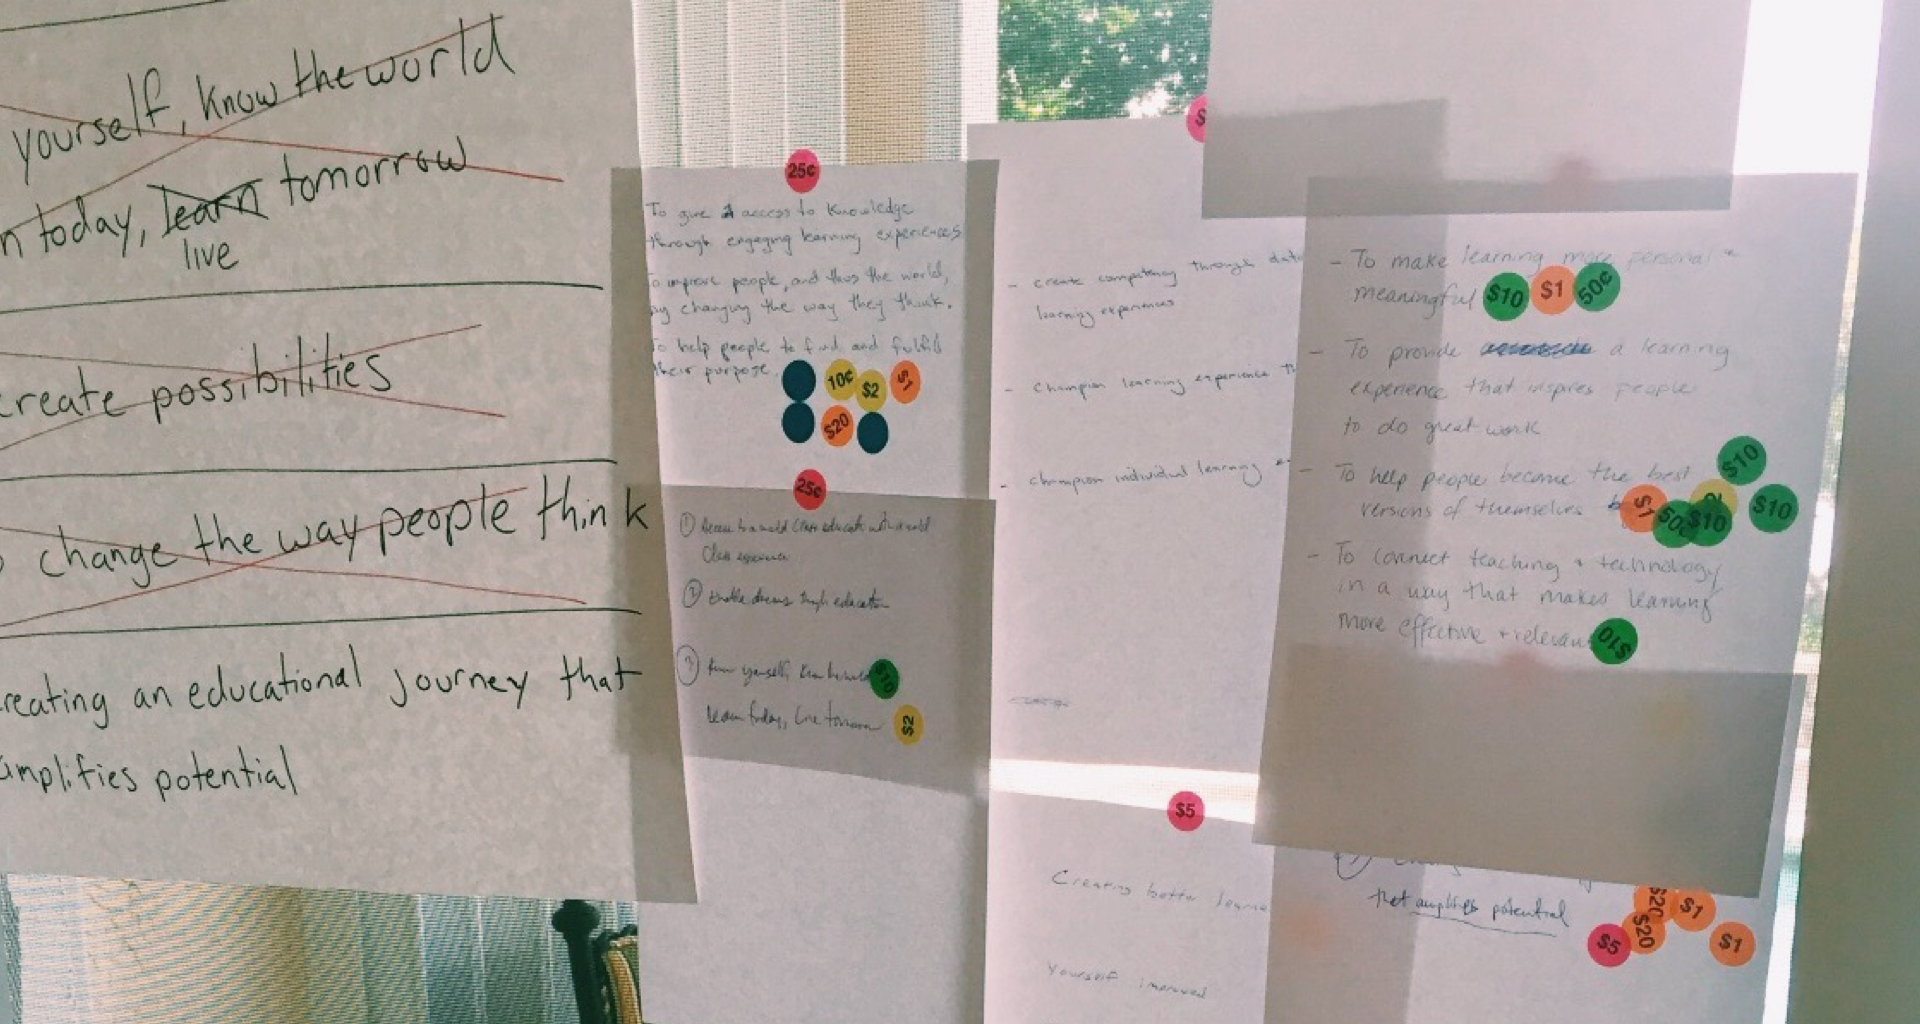 yourself, know the world
today, learn tomorrow
live
create possibilities
change the way people think
creating an educational journey that
amplifies potential
25¢
To give access to knowledge
through engaging learning experiences
To improve people, and thus the world,
by changing the way they think.
To help people to find and fulfill
their purpose.
10¢ $2 $1
$20
25¢
① Access to a world class education with world
Class experience
② Enable dreams through education
③ Know yourself, know the world $10
Learn today, live tomorrow $2
$
- create competency through
learning experiences
- Champion learning experience
- Champion individual learning
$5
Creating better
Yourself improved
- To make learning more personal +
meaningful $10 $1 50¢
- To provide a learning
experience that inspires people
to do great work
$10
- To help people become the best
versions of themselves $1 50¢ $10 $10
- To connect teaching + technology
in a way that makes learning
more effective + relevant $10
that amplifies potential
$20 $1
$5 $20 $1